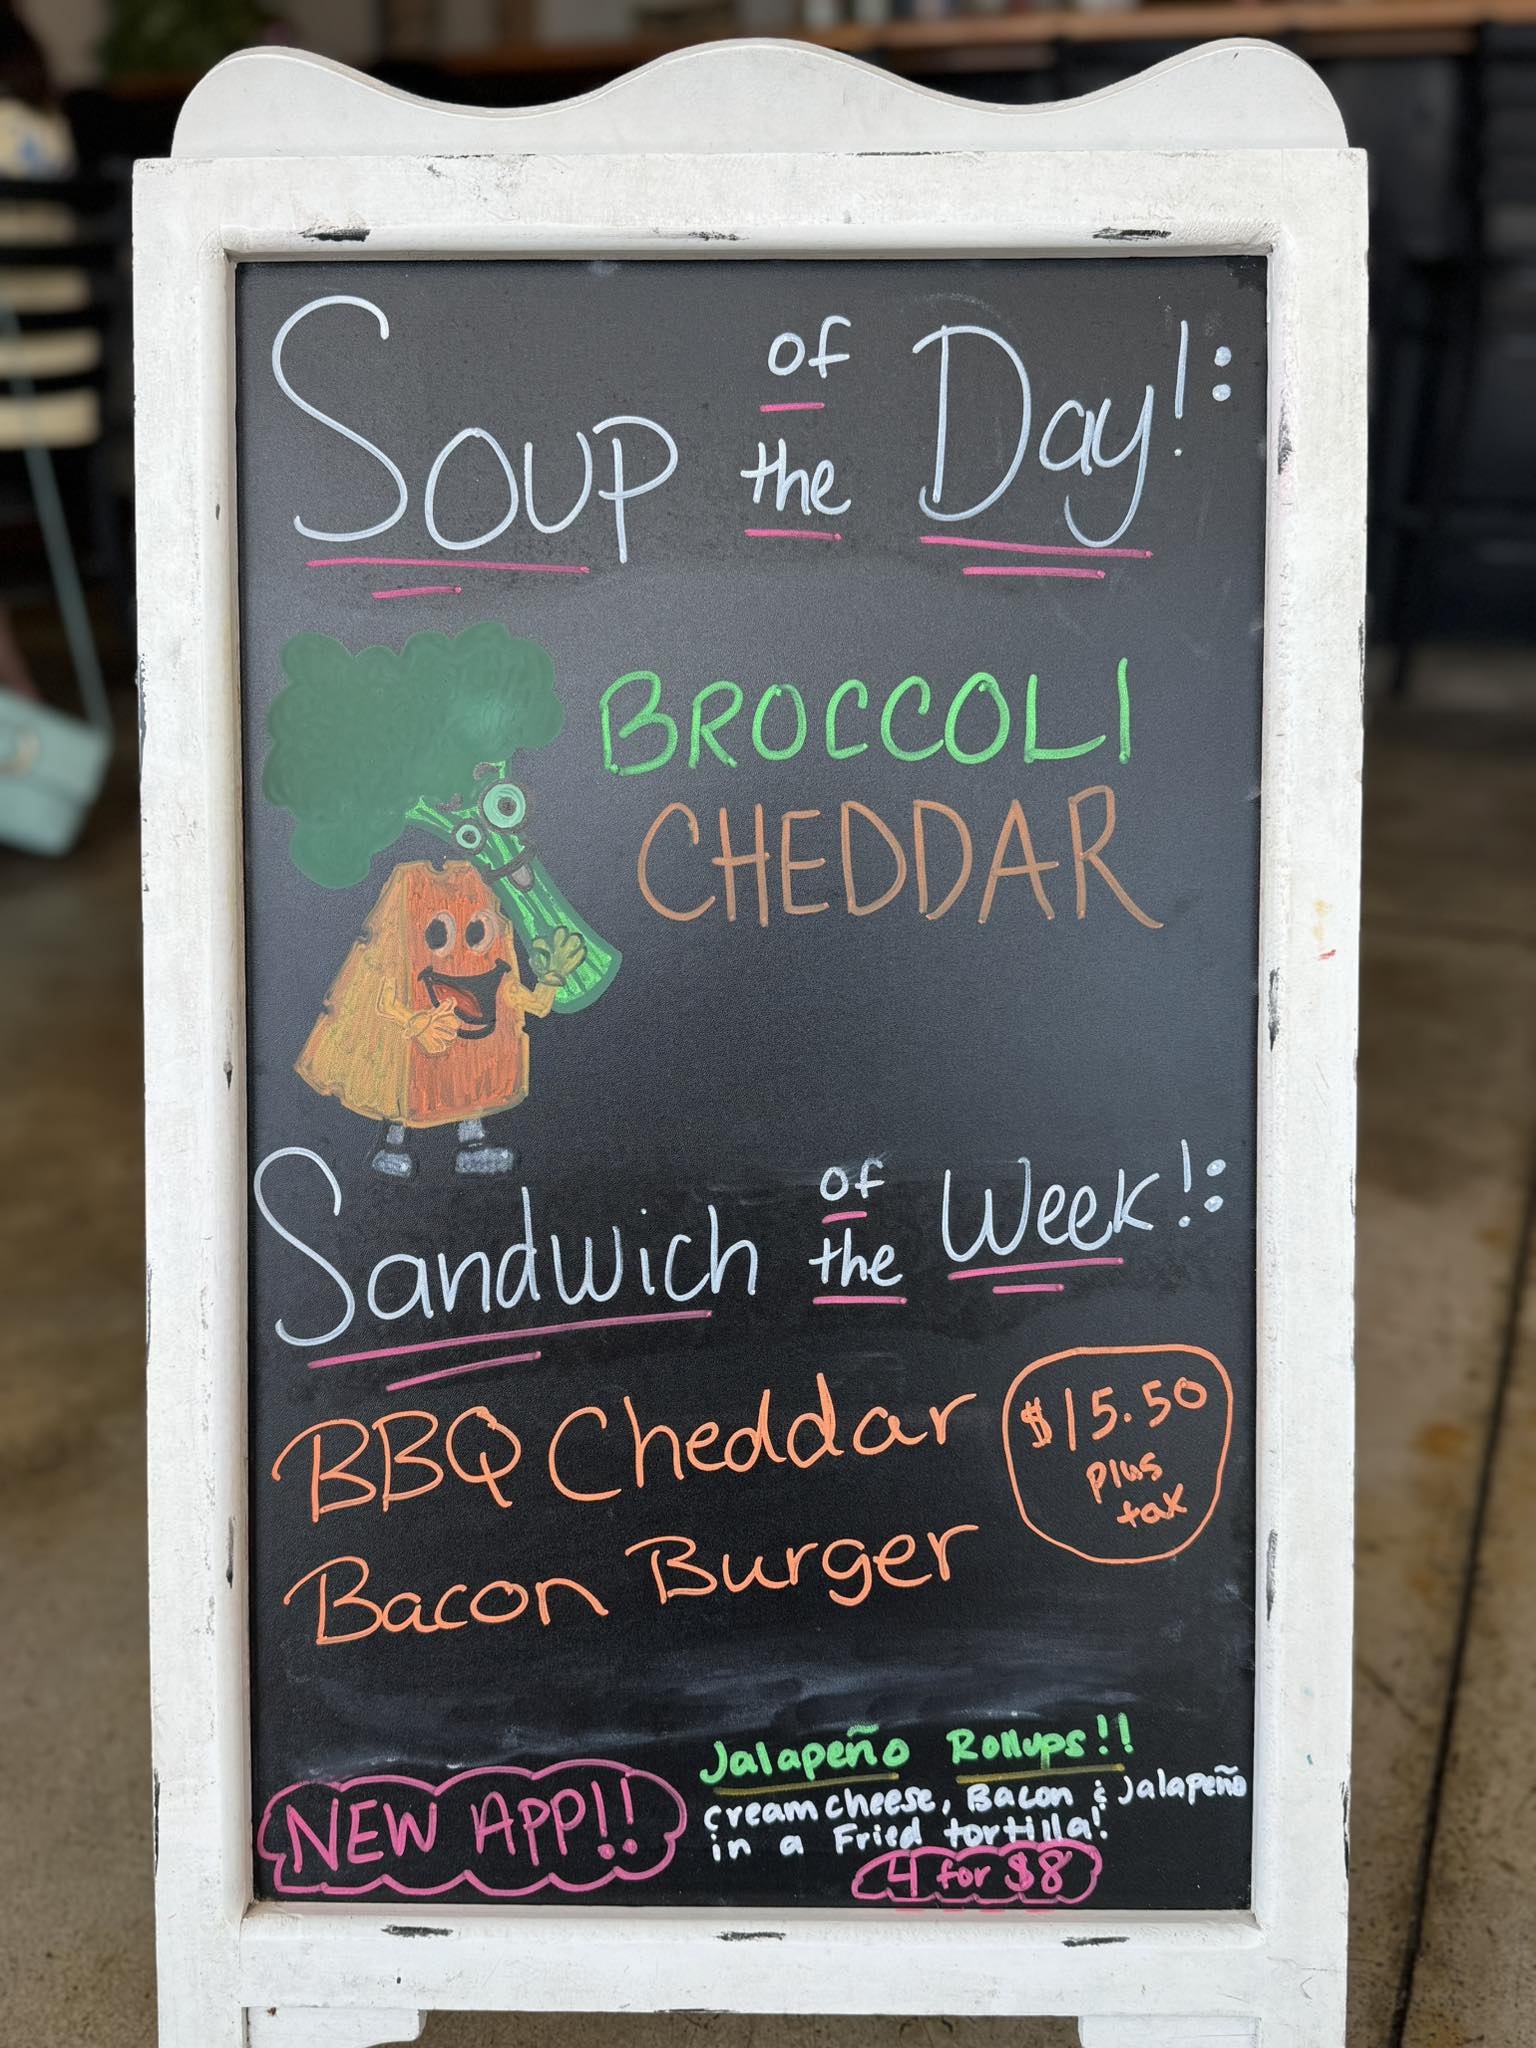 Soup of the Day!:
BROCCOLI
CHEDDAR
Sandwich of the Week!:
BBQ Cheddar
Bacon Burger
$15.50
plus
tax
NEW APP!!
Jalapeño Rollups!!
cream cheese, Bacon & Jalapeño
in a Fried tortilla!
4 for $8